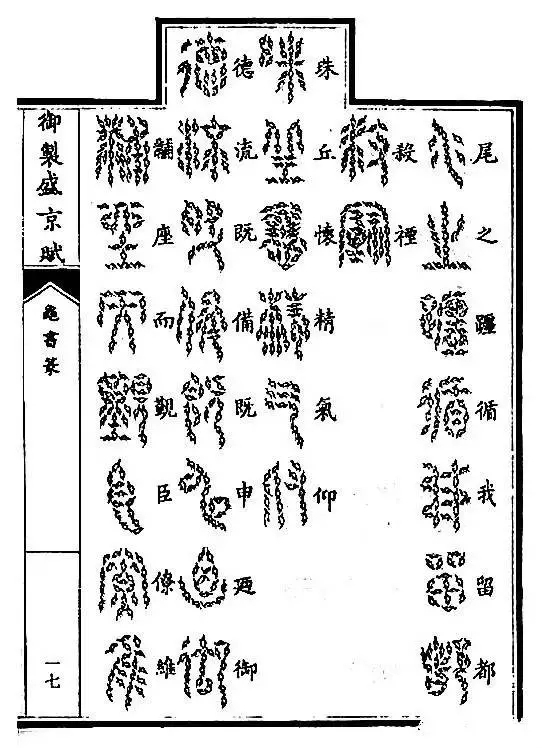 尾之躔循我留都
殺禋
珠丘懷精氣仰
德流既備既申迺御
黼座而覲臣僚維
御製盛京賦
龜書篆
一七